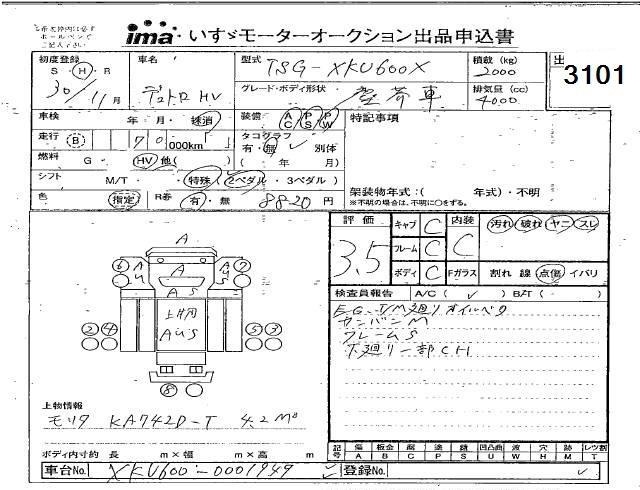 ima いすゞモーターオークション出品申込書
3101
初度登録 S・H・R 30/11月
車名 デュトロHV
型式 TSG-XKU600X
積載 (kg) 2000
グレード・ボディ形状 塵芥車
排気量 (cc) 4000
車検 年 月・抹消
装備 AC PS PW
特記事項
走行 B 70,000km「」
タコグラフ 有・無 別体
燃料 G HV 他( )
( 年 月)
シフト M/T・特殊(2ペダル・3ペダル)
色 指定 R券 有・無 8820円
架装物年式:( 年式)・不明
※不明の場合は、不明に○をする。
評価 3.5
キャブ C 内装 C 汚れ・破れ・ヤニ・スレ
フレーム C
ボディ C Fガラス 割れ 線 点傷・イバリ
検査員報告 A/C(✓) B/T( )
EG T/M廻りオイルベタ
カンバンM
フレームS
下廻り一部CH
A
6 A U A U 7
A S
2 4 上物用 AUS 5 3
8
上物情報
モリタ KA742D-T 4.2M³
ボディ内寸約 長 m×幅 m×高 m
記号 傷 板金 腐 塗 補 凹 凸曲 波 穴 跡 レツ割
A B C P S U W H M T
車台No. XKU600-0001949
登録No.